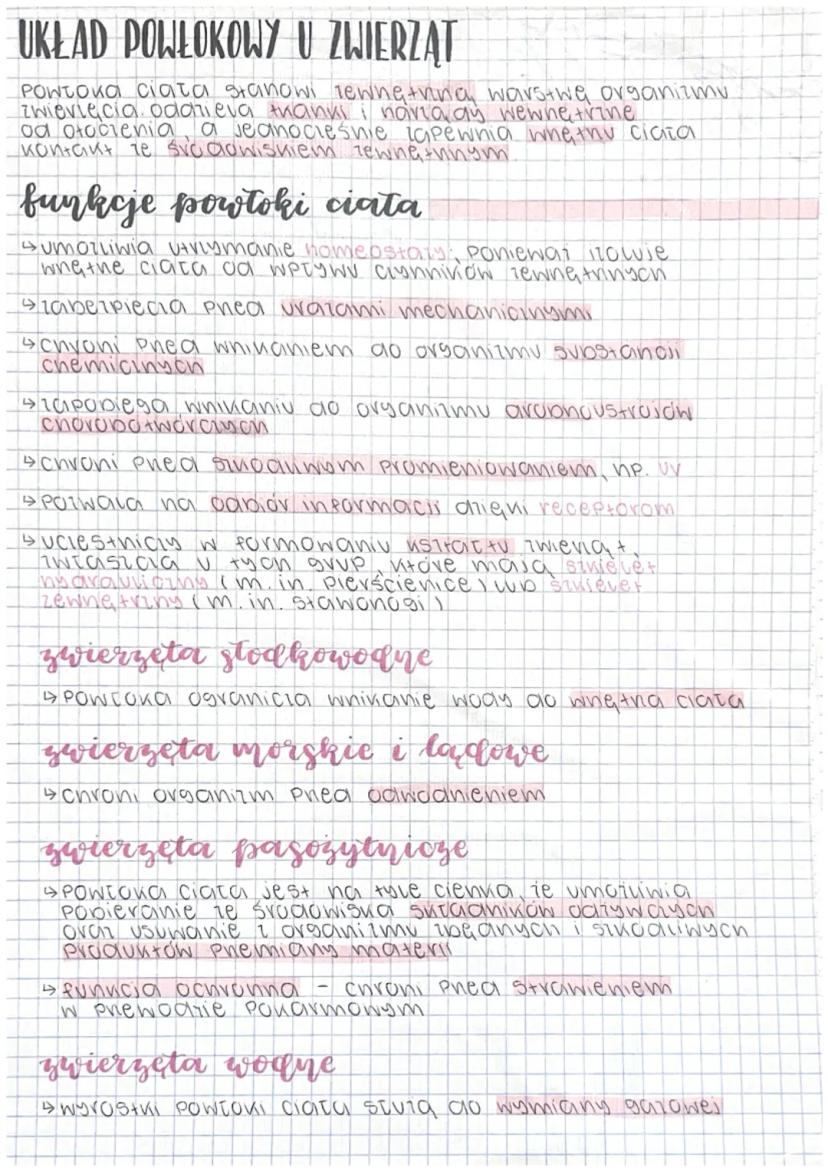 UKŁAD POWŁOKOWY U ZWIERZĄT
powłoka ciała stanowi zewnętrzną warstwę organizmu
zwierzęcia. oddziela tkanki i narządy wewnętrzne
od otoczenia, a jednocześnie zapewnia wnętrzu ciała
kontakt ze środowiskiem zewnętrznym.
funkcje powłoki ciała
↳ umożliwia utrzymanie homeostazy, ponieważ izoluje
wnętrze ciała od wpływu czynników zewnętrznych
↳ zabezpiecza przed urazami mechanicznymi
↳ chroni przed wnikaniem do organizmu substancji
chemicznych
↳ zapobiega wnikaniu do organizmu drobnoustrojów
chorobotwórczych
↳ chroni przed szkodliwym promieniowaniem, np. UV
↳ pozwala na odbiór informacji dzięki receptorom
↳ uczestniczy w formowaniu kształtu zwierząt,
zwłaszcza u tych grup, które mają szkielet
hydrauliczny (m.in. pierścienice) lub szkielet
zewnętrzny (m.in. stawonogi)
zwierzęta słodkowodne
↳ powłoka ogranicza wnikanie wody do wnętrza ciała
zwierzęta morskie i lądowe
↳ chroni organizm przed odwodnieniem
zwierzęta pasożytnicze
↳ powłoka ciała jest na tyle cienka, że umożliwia
pobieranie ze środowiska składników odżywczych
oraz usuwanie z organizmu zbędnych i szkodliwych
produktów przemiany materii
↳ funkcja ochronna - chroni przed strawieniem
w przewodzie pokarmowym
zwierzęta wodne
↳ wyrostki powłoki ciała służą do wymiany gazowej